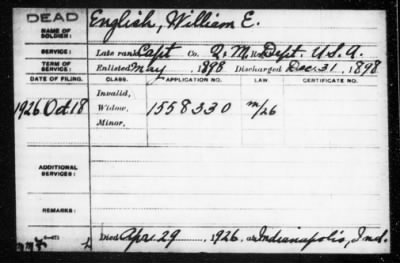 DEAD
NAME OF SOLDIER: English, William E.
SERVICE: Late rank Capt Co. Q. M. Re Dept. U.S.A.
TERM OF SERVICE: Enlisted May, 1898 Discharged Dec. 31, 1898
DATE OF FILING. CLASS. APPLICATION NO. LAW. CERTIFICATE NO.
Invalid,
1926 Oct 18 Widow, 1558330 m/26
Minor,
ADDITIONAL SERVICES:
REMARKS:
Died Apr. 29, 1926, at Indianapolis, Ind.